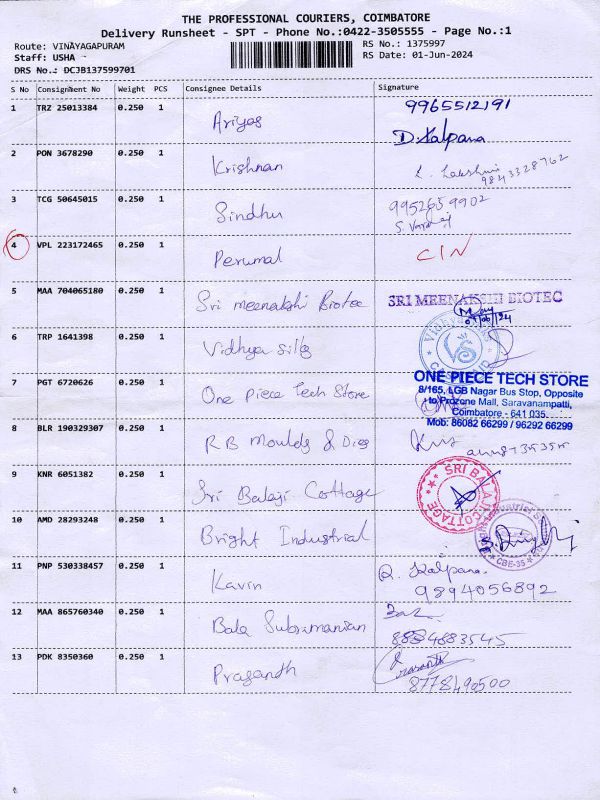 THE PROFESSIONAL COURIERS, COIMBATORE
Delivery Runsheet - SPT - Phone No.:0422-3505555 - Page No.:1
Route: VINAYAGAPURAM RS No.: 1375997
Staff: USHA RS Date: 01-Jun-2024
DRS No.: DCJB137599701
S No Consignment No Weight PCS Consignee Details Signature
1 TRZ 25013384 0.250 1 Ariyas 9965512191
D. Kalpana
2 PON 3678290 0.250 1 Krishnan L. Lakshmi
9843328762
3 TCG 50645015 0.250 1 Sindhu 9952659902
4 VPL 223172465 0.250 1 Perumal CIN
5 MAA 704065180 0.250 1 Sri Meenakshi Biotec SRI MEENAKSHI BIOTEC
6 TRP 1641398 0.250 1 Vidhya Silks
7 PGT 6720626 0.250 1 One Piece Tech Store ONE PIECE TECH STORE
8/165, LGB Nagar Bus Stop, Opposite
to Prozone Mall, Saravanampatti,
Coimbatore - 641 035.
Mob: 86082 66299 / 96292 66299
8 BLR 190329307 0.250 1 RB Moulds & Dies
9 KNR 6051382 0.250 1 Sri Balaji Cottage SRI BALAJI COTTAGE
10 AMD 28293248 0.250 1 Bright Industrial CBE-35
11 PNP 530338457 0.250 1 Kavin R. Kalpana.
9894056892
12 MAA 865760340 0.250 1 Bala Subramanian
8884883545
13 PDK 8350360 0.250 1 Prasanth Prasanth
8778490500